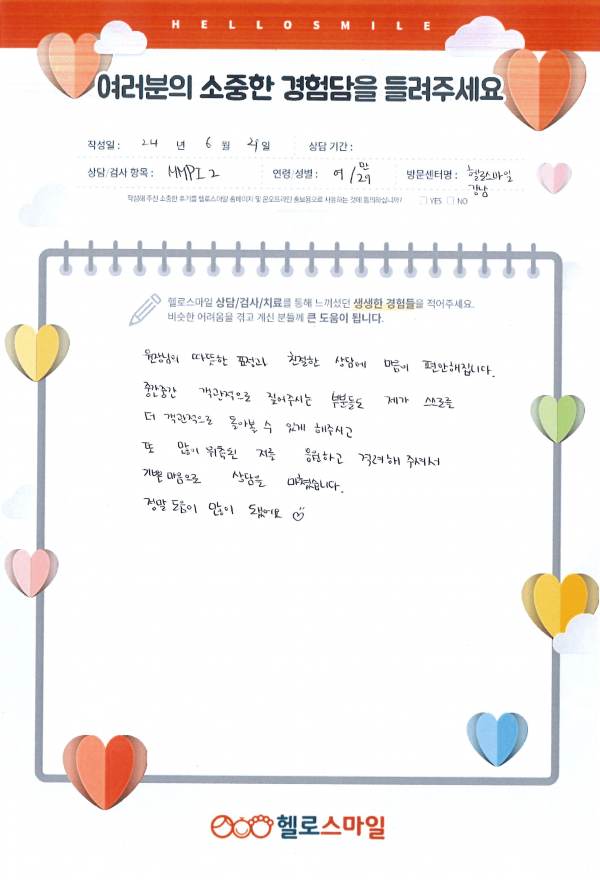 HELLOSMILE
여러분의 소중한 경험담을 들려주세요
작성일 : 24 년 6 월 29일 상담 기간 :
상담/검사 항목 : MMPI 2 연령/성별 : 여 / 만 29 방문센터명 : 헬로스마일 강남
작성해 주신 소중한 후기를 헬로스마일 홈페이지 및 온오프라인 홍보용으로 사용하는 것에 동의하십니까? □ YES □ NO
헬로스마일 상담/검사/치료를 통해 느끼셨던 생생한 경험들을 적어주세요.
비슷한 어려움을 겪고 계신 분들께 큰 도움이 됩니다.
원장님의 따뜻한 표정과 친절한 상담에 마음이 편안해집니다.
중간중간 객관적으로 짚어주시는 부분들도 제가 스스로를
더 객관적으로 돌아볼 수 있게 해주시고
또 많이 위축된 저를 응원하고 격려해 주셔서
기쁜 마음으로 상담을 마쳤습니다.
정말 도움이 많이 됐어요
헬로스마일